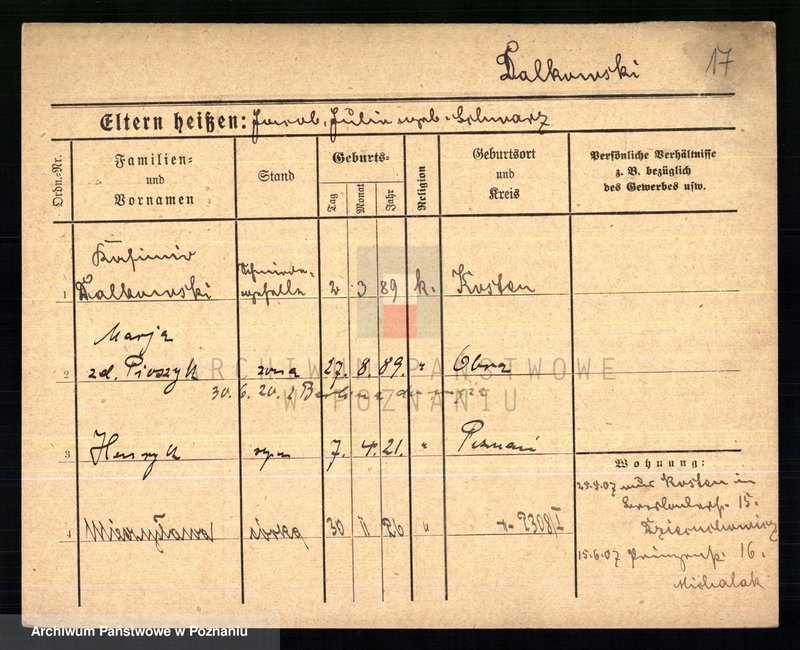 Dalkowski
17
Eltern heißen: Jacob, Julie geb. Schwarz
Ordn.-Nr.
Familien-
und
Vornamen
Stand
Geburts-
Tag
Monat
Jahr
Religion
Geburtsort
und
Kreis
Persönliche Verhältnisse
z. B. bezüglich
des Gewerbes usw.
Kasimir
Schmiede-
1 Dalkowski geselle 2 3 89 k. Kosten
Marja
2 zd. żona 27. 8. 89. " Obra
30. 6. 20. z do męża
3 Henryk syn 7. 4. 21. " Poznań
4 Mieczysława córka 30 11 26 "
Wohnung:
aus Kosten in
Breslauerstr. 15.
15.6.07 16.
Michalak
ARCHIWUM PAŃSTWOWE
W POZNANIU
Archiwum Państwowe w Poznaniu